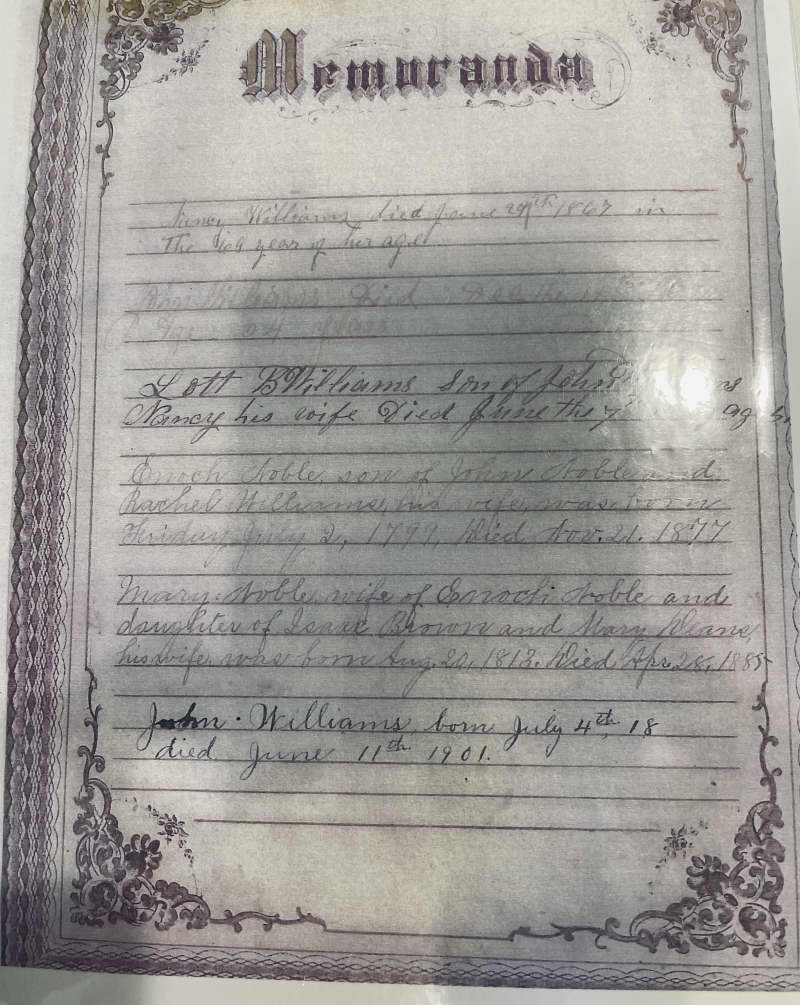 Memoranda
Nancy Williams died June 29th 1867 in
The 69 year of her age
Williams Died Dec the
Age 94 years
Lott B Williams son of John
Nancy his wife Died June the 7
Enoch Noble, son of John Noble and
Rachel Williams, his wife, was born
Friday, July 2, 1799, Died Nov. 21. 1877
Mary Noble, wife of Enoch Noble and
daughter of Isaac Brown and Mary Deans,
his wife, was born Aug. 20, 1813. Died Apr. 28, 1885
John Williams, born July 4th, 18
died June 11th 1901.